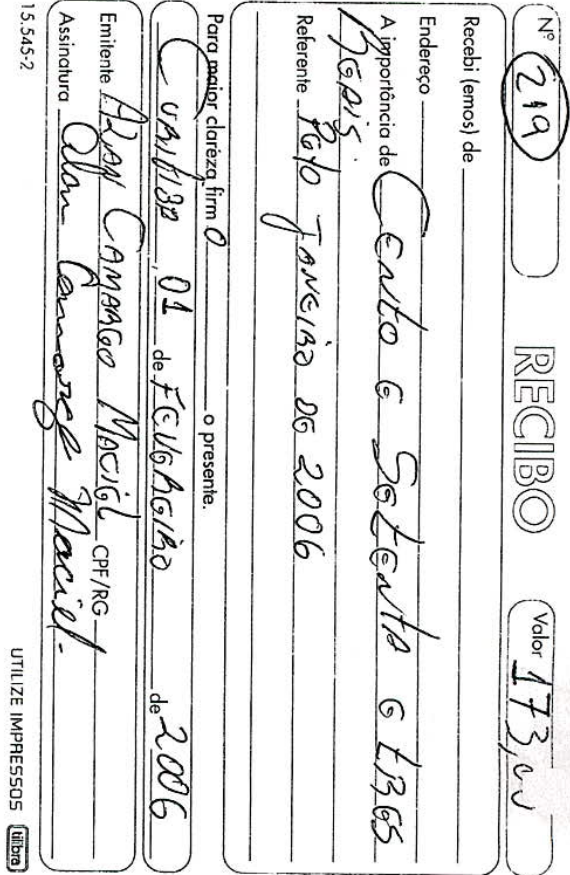 Nº 219 RECIBO Valor 173,00
Recebi (emos) de
Endereço
A importância de Cento e Setenta e tres
Reais.
Referente Pgto Janeiro de 2006
Para maior clareza firm o o presente.
Curitiba, 01 de Fevereiro de 2006
Emitente Alan Camargo Maciel CPF/RG
Assinatura Alan Camargo Maciel.
15.545-2 UTILIZE IMPRESSOS tilibra